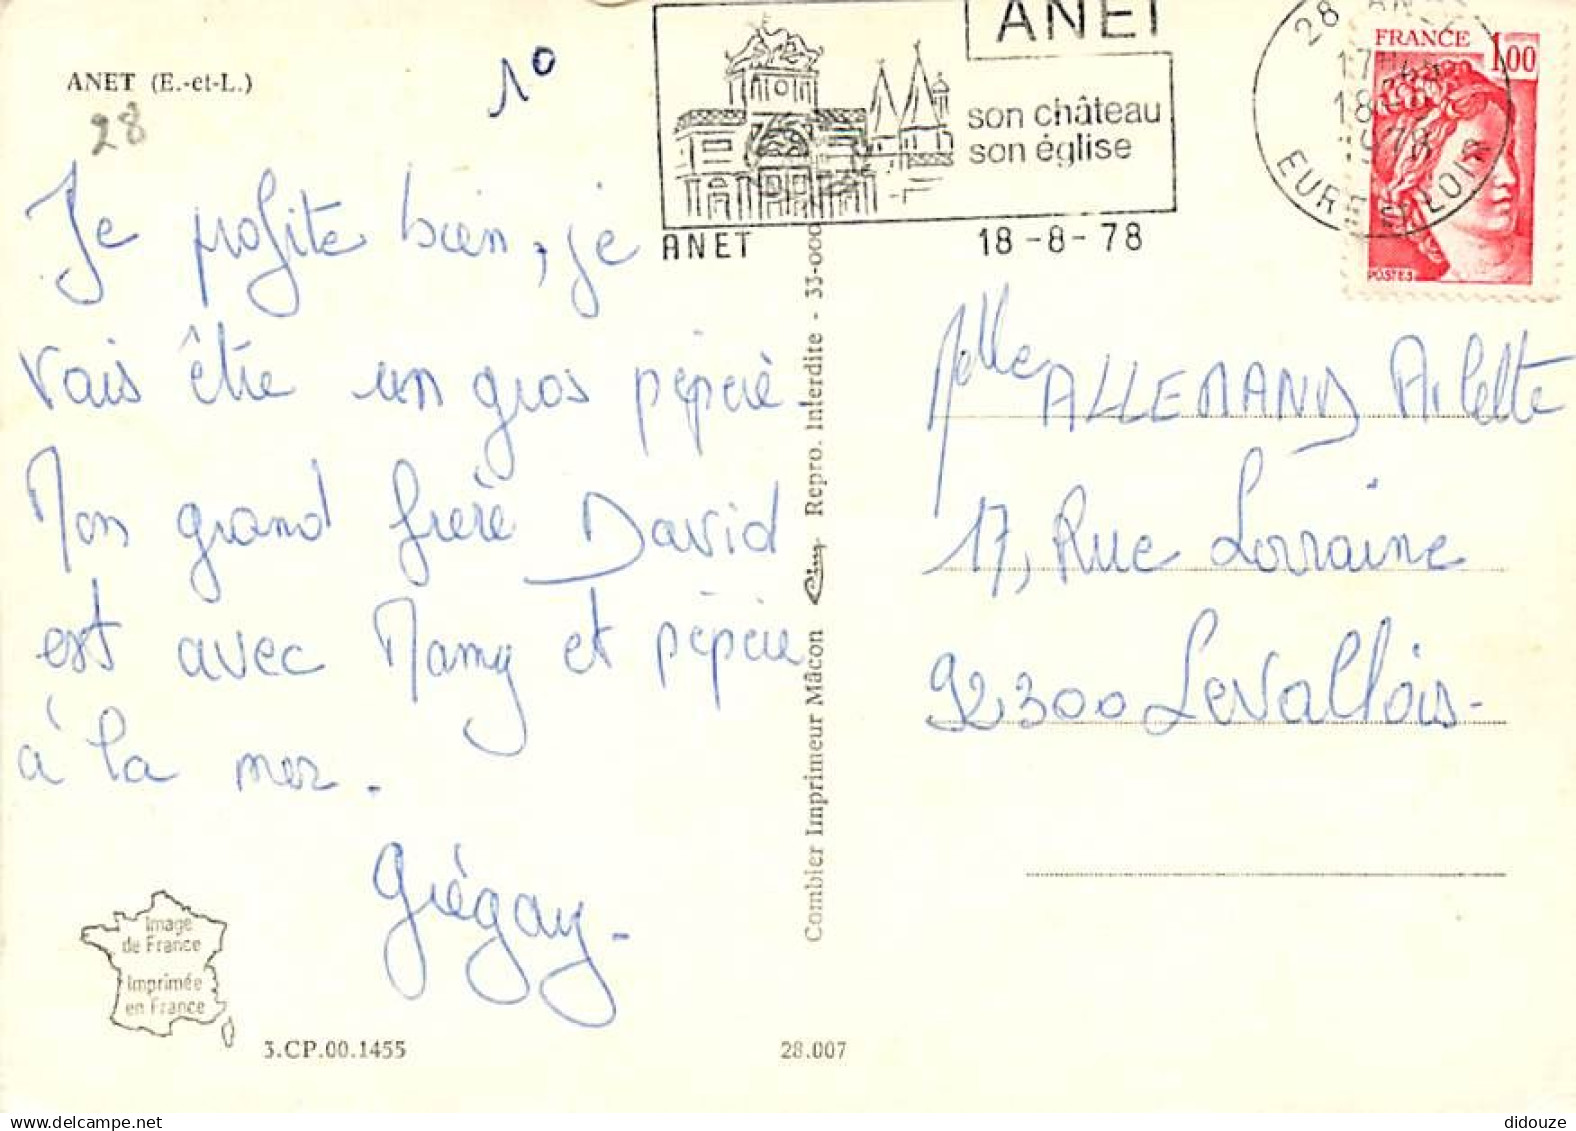 ANET (E.-et-L.)
28
1°
ANET
son château
son église
ANET 18-8-78
28 AN
17H
18-8
1978
EURE ET LOIR
FRANCE 1,00
POSTES
Je profite bien, je
vais être un gros pépère.
Mon grand frère David
est avec Mamy et pépère
à la mer.
Grégory.
Image
de France
Imprimée
en France
3.CP.00.1455
28.007
Combier Imprimeur Mâcon Cim Repro. Interdite - 33-000
Melle ALLEMAND Arlette
17, Rue Lorraine
92300 Levallois.
didouze